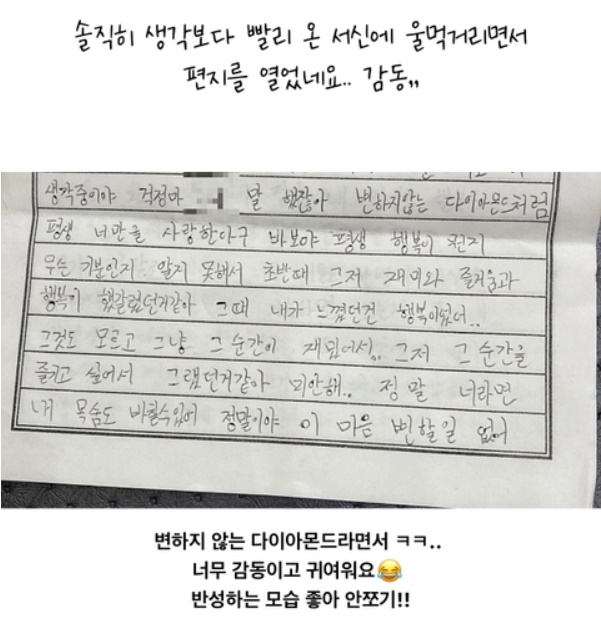 솔직히 생각보다 빨리 온 서신에 울먹거리면서
편지를 열었네요.. 감동,,
생각중이야 걱정마 말 했잖아 변하지않는 다이아몬드처럼
평생 너만을 사랑한다구 바보야 평생 행복이 뭔지
무슨 기분인지 알지 못해서 초반때 그저 재미와 즐거움과
행복이 헷갈렸던거같아 그때 내가 느꼈던건 행복이었어..
그것도 모르고 그냥 그 순간이 재밌어서.. 그저 그 순간을
즐기고 싶어서 그랬던거같아 미안해.. 정말 너라면
내 목숨도 바칠수있어 정말이야 이 마음 변할일 없어
변하지 않는 다이아몬드라면서 ㅋㅋ..
너무 감동이고 귀여워요😂
반성하는 모습 좋아 안쪼기!!